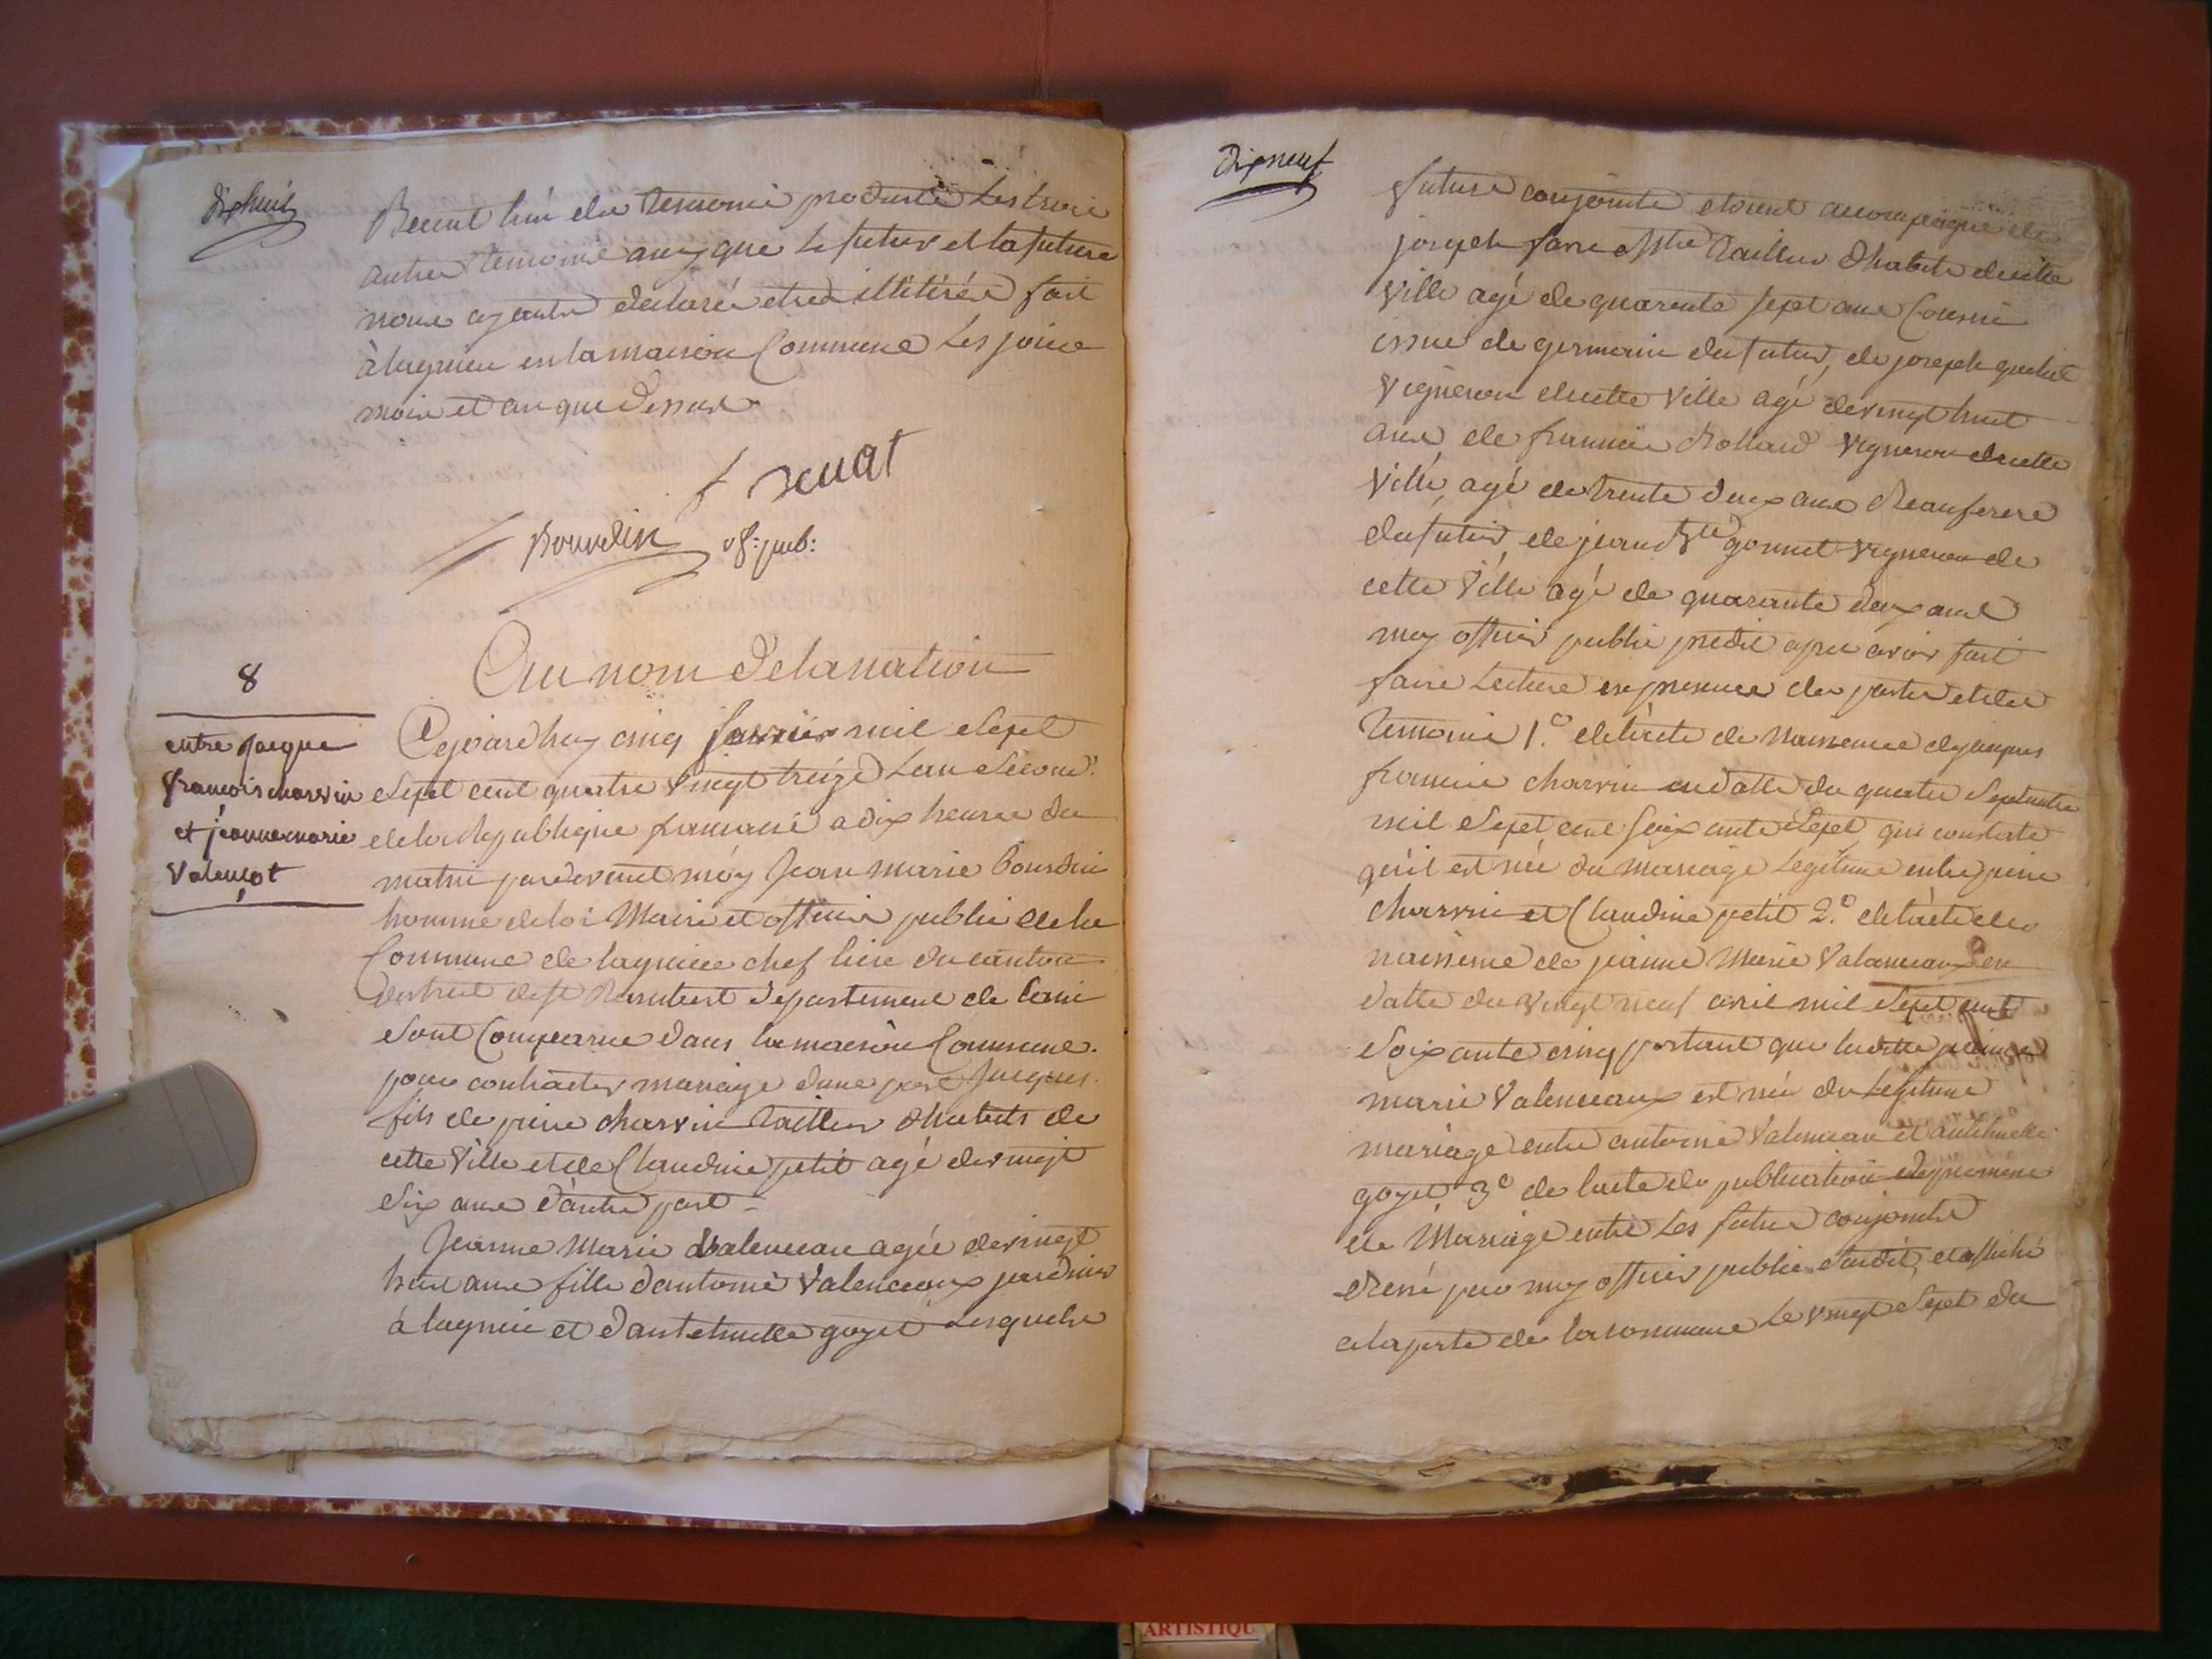 dixhuit
Benat l'un des temoins produits Les trois
autres temoins ainsy que Le futur et la future
nous ayants declarés etres illitérés fait
à lagnieu en la maison Commune Les jour
mois et an que dessus
f benat
Bourdin of: pub:
Au nom de la nation
8
entre jacque
françois charvin
et jeanne marie
Valençot
Cejourdhuy cinq fevrier mil Sept
Sept cent quatre Vingt treize Lan Second
de la Republique francaise a dix heures du
matin pardevant moy Jean Marie Bourdin
homme de loi Maire et officier public de la
Commune de lagnieu chef lieu du canton
District de st Rambert Departement de Lain
Sont Comparus dans la maison Commune.
pour contracter mariage dune part Jacques
fils de pierre charvin tailleur dhabits de
cette Ville et de Claudine petit agé de vingt
Six ans d'autre part
Jeanne Marie Valenceau agée de vingt
huit ans fille dantoine Valenceaux jardinier
à lagnieu et d'antelmette goyet Lesquels
dixneuf
futurs conjoints etoient accompagnés de
joseph favre Mtre tailleur dhabits de cette
Ville agé de quarente sept ans Cousin
issus de germain du futur, de joseph
Vigneron de cette Ville agé de vingt huit
ans, de françois Rolland Vigneron de cette
Ville, agé de trente deux ans Beaufrere
du futur, de jean Bte gonnet Vigneron de
cette Ville agé de quarante deux ans
moy officier public predit apres avoir fait
faire Lecture en presence des parties et des
temoins 1.° de l'acte de Naissance de jacques
francois charvin en datte du quatre Septembre
mil Sept cent soixante Sept qui constate
qu'il est né du mariage Legitime entre pierre
charvin et Claudine petit 2.° de l'acte de
naissance de jeanne Marie Valanceaux en
datte du vingt neuf avril mil Sept cent
Soixante cinq portant que ladite jeanne
marie Valenceaux est née du Legitime
mariage entre antoine Valenceau et antelmette
goyet 3° de lacte de publication de promesse
de Mariage entre Les futurs conjoints
dressé par moy officier public Susdit, et affiché
a la porte de la commune Le vingt Sept du
ARTISTIQU